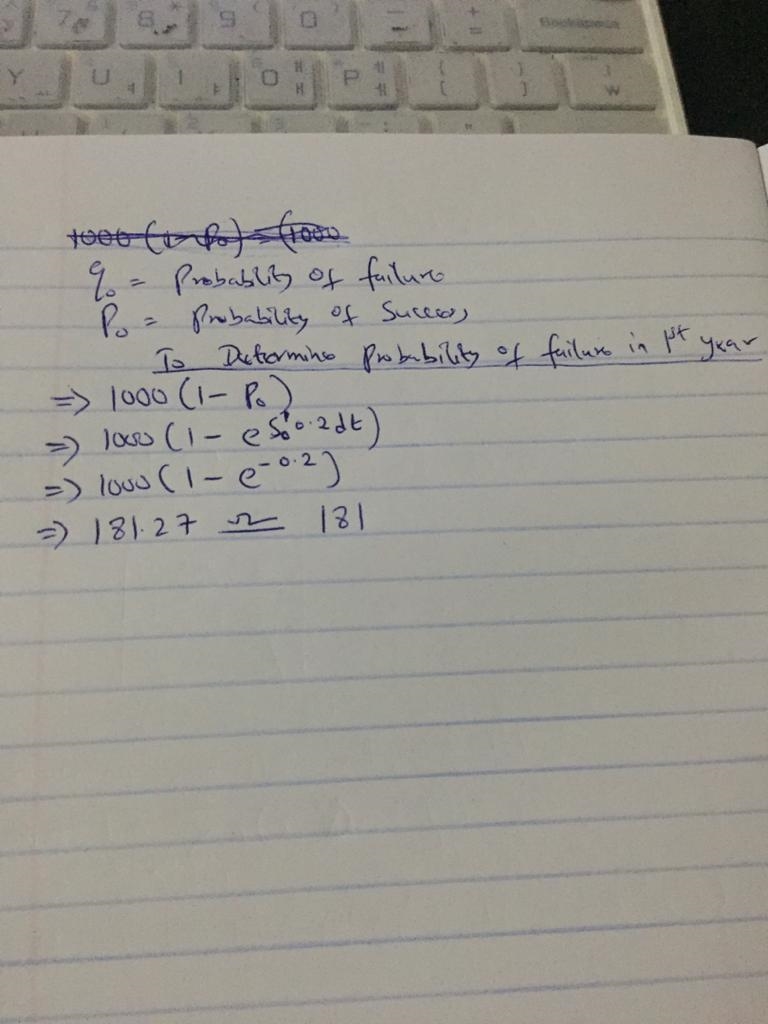 7 8 9 0 - + =
Backspace
Y U I O P { [ } ] W
1000 (1 - P₀) = (1000
q₀ = Probability of failure
P₀ = Probability of Success
To Determine probability of failure in 1st year
=> 1000 (1 - P₀)
=> 1000 (1 - e^∫₀¹ 0.2dt)
=> 1000 (1 - e^-0.2)
=> 181.27 ≏ 181